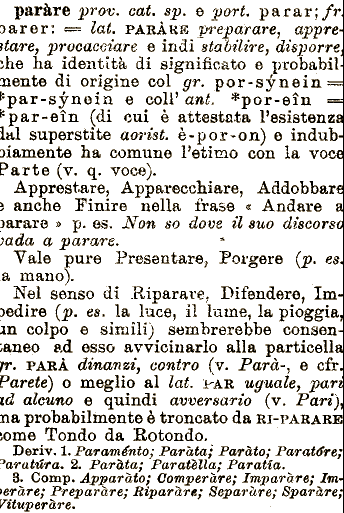 paràre prov. cat. sp. e port. parar; fr.
parer: = lat. PARÀRE preparare, appre-
stare, procacciare e indi stabilire, disporre,
che ha identità di significato e probabil-
mente di origine col gr. por-sýnein =
*par-sýnein e coll' ant. *por-eîn =
*par-eîn (di cui è attestata l'esistenza
dal superstite aorist. è-por-on) e indub-
biamente ha comune l'etimo con la voce
Parte (v. q. voce).
Apprestare, Apparecchiare, Addobbare
e anche Finire nella frase « Andare a
parare » p. es. Non so dove il suo discorso
vada a parare.
Vale pure Presentare, Porgere (p. es.
la mano).
Nel senso di Riparare, Difendere, Im-
pedire (p. es. la luce, il lume, la pioggia,
un colpo e simili) sembrerebbe consen-
taneo ad esso avvicinarlo alla particella
gr. PARÀ dinanzi, contro (v. Parà-, e cfr.
Parete) o meglio al lat. PAR uguale, pari
ad alcuno e quindi avversario (v. Pari),
ma probabilmente è troncato da RI-PARARE
come Tondo da Rotondo.
Deriv. 1. Paraménto; Paràta; Paràto; Paratóre;
Paratúra. 2. Paràta; Paratèlla; Paratía.
3. Comp. Apparàto; Comperàre; Imparàre; Im-
peràre; Preparàre; Riparàre; Separàre; Sparàre;
Vituperàre.